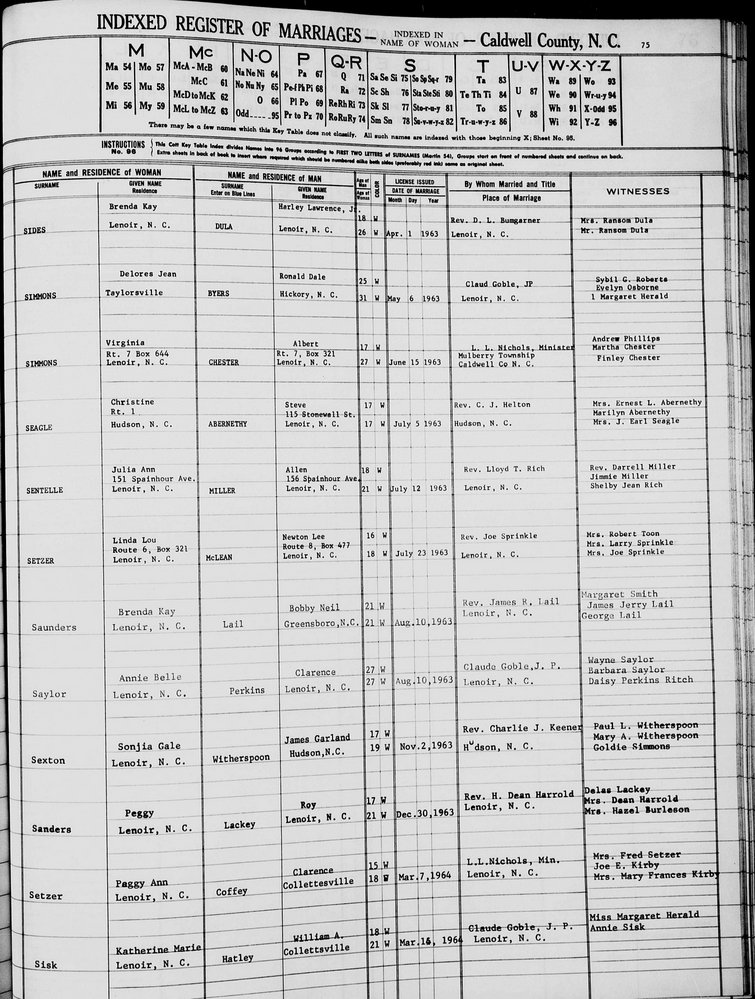 INDEXED REGISTER OF MARRIAGES — INDEXED IN NAME OF WOMAN — Caldwell County, N. C. 75
M Mc N-O P Q-R S T U-V W-X-Y-Z
Ma 54 Mo 57 McA - McB 60 Na Ne Ni 64 Pa 67 Q 71 Sa Se Si 75 So Sp Sq-r 79 Ta 83 U 87 Wa 89 Wo 93
Me 55 Mu 58 McC 61 No Nu Ny 65 Pe-f Ph Pi 68 Ra 72 Sc Sh 76 Sta Ste Sti 80 Te Th Ti 84 We 90 Wr-u-y 94
McD to McK 62 O 66 Pl Po 69 Re Rh Ri 73 Sk Sl 77 Sto-r-u-y 81 To 85 V 88 Wh 91 X-Odd 95
Mi 56 My 59 McL to McZ 63 Odd.....95 Pr to Pz 70 Ro Ru Ry 74 Sm Sn 78 Su-v-w-y-z 82 Tr-u-w-y-z 86 Wi 92 Y-Z 96
There may be a few names which this Key Table does not classify. All such names are indexed with those beginning X; Sheet No. 95.
INSTRUCTIONS No. 96
This Cott Key Table Index divides Names into 96 Groups according to FIRST TWO LETTERS of SURNAMES (Martin 54). Groups start on front of numbered sheets and continue on back.
Extra sheets in back of book to insert where required which should be numbered alike both sides (preferably red ink) same as original sheet.
NAME and RESIDENCE OF WOMAN NAME and RESIDENCE OF MAN Age of Man COLOR LICENSE ISSUED By Whom Married and Title WITNESSES
SURNAME GIVEN NAME Residence SURNAME Enter on Blue Lines GIVEN NAME Residence Age of Woman DATE OF MARRIAGE Month Day Year Place of Marriage
Brenda Kay Harley Lawrence, Jr. 18 W Rev. D. L. Bumgarner Mrs. Ransom Dula
SIDES Lenoir, N. C. DULA Lenoir, N. C. 26 W Apr. 1 1963 Lenoir, N. C. Mr. Ransom Dula
Delores Jean Ronald Dale 25 W Claud Goble, JP Sybil G. Roberts
Evelyn Osborne
SIMMONS Taylorsville BYERS Hickory, N. C. 31 W May 6 1963 Lenoir, N. C. 1 Margaret Herald
Virginia Albert 17 W L. L. Nichols, Minister Andrew Phillips
Rt. 7 Box 644 Rt. 7, Box 321 Mulberry Township Martha Chester
SIMMONS Lenoir, N. C. CHESTER Lenoir, N. C. 27 W June 15 1963 Caldwell Co N. C. Finley Chester
Christine Steve 17 W Rev. C. J. Helton Mrs. Ernest L. Abernethy
Rt. 1 115 Stonewall St. Marilyn Abernethy
SEAGLE Hudson, N. C. ABERNETHY Lenoir, N. C. 17 W July 5 1963 Hudson, N. C. Mrs. J. Earl Seagle
Julia Ann Allen 18 W Rev. Lloyd T. Rich Rev. Darrell Miller
151 Spainhour Ave. 156 Spainhour Ave. Jimmie Miller
SENTELLE Lenoir, N. C. MILLER Lenoir, N. C. 21 W July 12 1963 Lenoir, N. C. Shelby Jean Rich
Linda Lou Newton Lee 16 W Rev. Joe Sprinkle Mrs. Robert Toon
Route 6, Box 321 Route 8, Box 477 Mrs. Larry Sprinkle
SETZER Lenoir, N. C. McLEAN Lenoir, N. C. 18 W July 23 1963 Lenoir, N. C. Mrs. Joe Sprinkle
Brenda Kay Bobby Neil 21 W Rev. James R. Lail Margaret Smith
James Jerry Lail
Saunders Lenoir, N. C. Lail Greensboro,N.C. 21 W Aug.10,1963 Lenoir, N. C. George Lail
Annie Belle Clarence 27 W Claude Goble,J. P. Wayne Saylor
Barbara Saylor
Saylor Lenoir, N. C. Perkins Lenoir, N. C. 27 W Aug.10,1963 Lenoir, N. C. Daisy Perkins Ritch
Sonjia Gale James Garland 17 W Rev. Charlie J. Keener Paul L. Witherspoon
Mary A. Witherspoon
Sexton Lenoir, N. C. Witherspoon Hudson,N.C. 19 W Nov.2,1963 Hudson, N. C. Goldie Simmons
Peggy Roy 17 W Rev. H. Dean Harrold Delas Lackey
Mrs. Dean Harrold
Sanders Lenoir, N. C. Lackey Lenoir, N. C. 21 W Dec.30,1963 Lenoir, N. C. Mrs. Hazel Burleson
Peggy Ann Clarence 15 W L.L.Nichols, Min. Mrs. Fred Setzer
Joe E. Kirby
Setzer Lenoir, N. C. Coffey Collettesville 18 W Mar.7,1964 Lenoir, N. C. Mrs. Mary Frances Kirby
Katherine Marie William A. 18 W Claude Goble, J. P. Miss Margaret Herald
Sisk Lenoir, N. C. Hatley Collettsville 21 W Mar.16, 1964 Lenoir, N. C. Annie Sisk